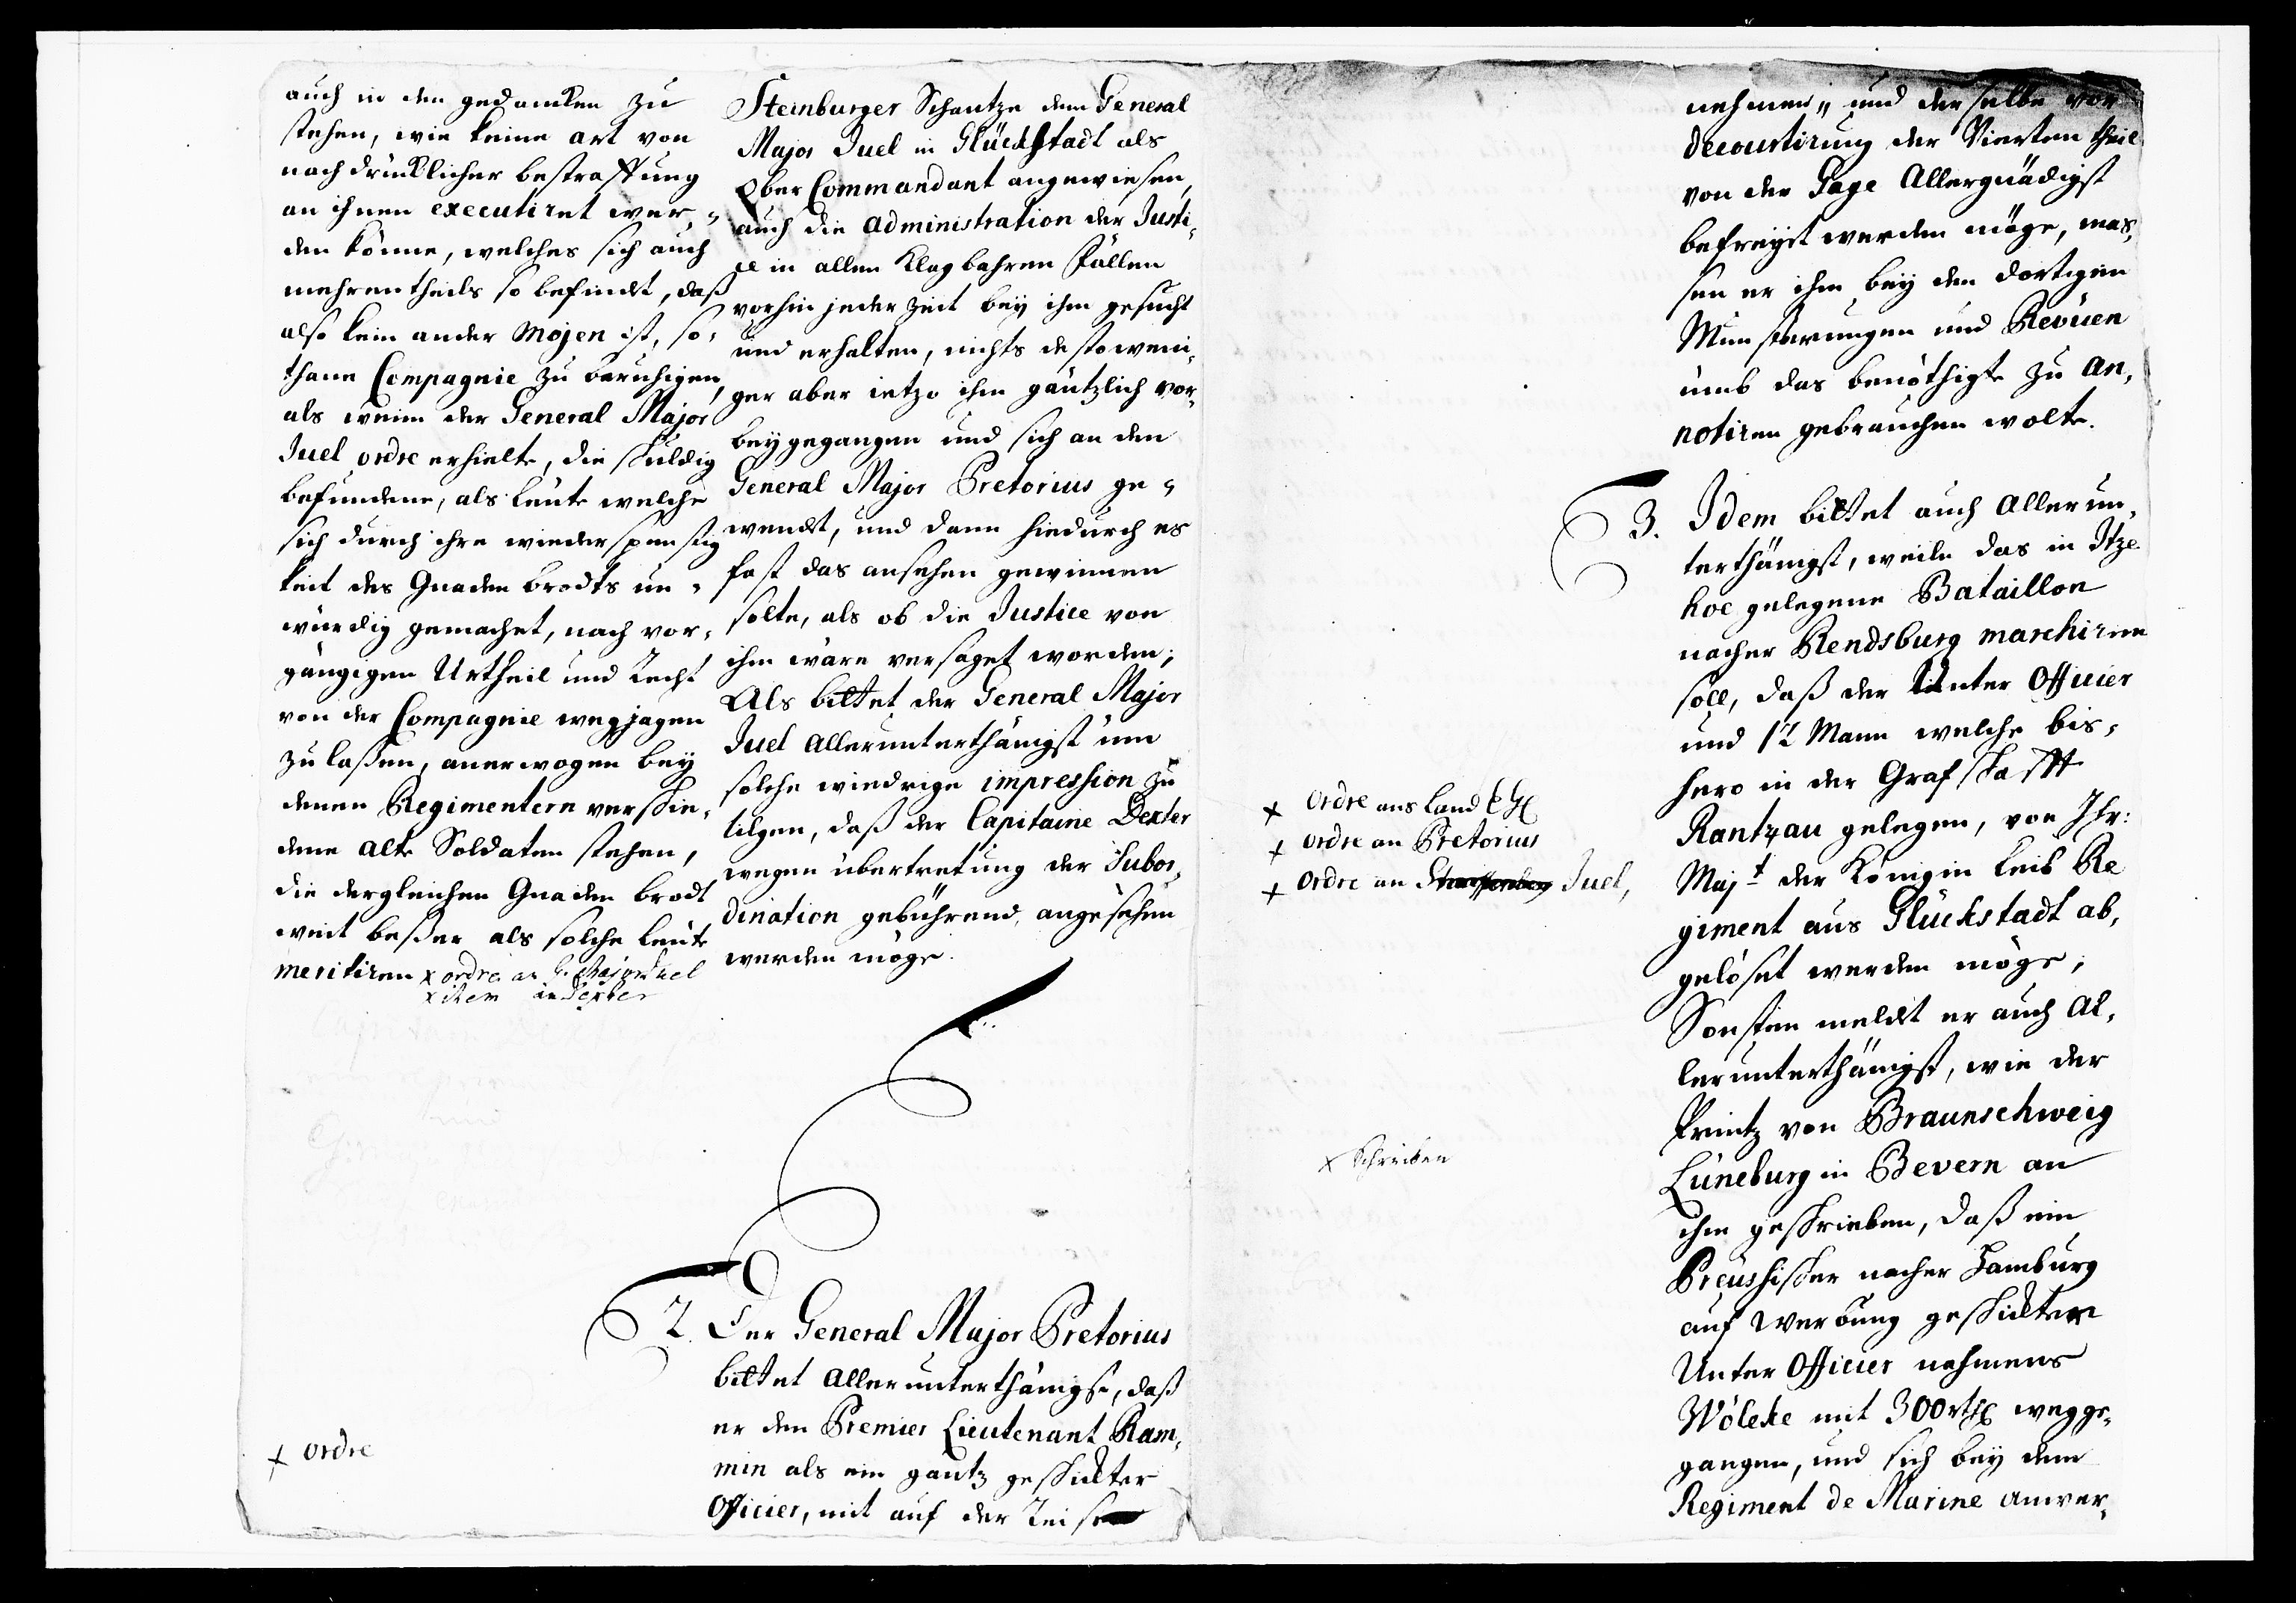 auch in den gedancken zu
stehen, wie keine art von
nachdrücklicher bestraffung
an ihnen executiret wer,
den könne, welches sich auch
mehrentheils so befindet, daß
also kein ander Mojen ist, so,
thane Compagnie zu beruhigen,
als wenn der General Major
Juel ordre erhielte, die schuldig
befundene, als leute welche
sich durch ihre wiederspenstig
keit des Gnaden brodts un,
würdig gemachet, nach vor,
gängigen Urtheil und Recht
von der Compagnie wegjagen
zu laßen, anerwogen bey
denen Regimentern verschie,
dene alte Soldaten stehen,
die dergleichen Gnaden brodt
weit beßer als solche leute
meritiren x ordre an G. Major Juel
x item an Dexter
Steinburger Schantze dem General
Major Juel in Glückstadt als
Ober Commandant angewiesen,
auch die administration der Justi,
ce in allen Klagbahren Fällen
vorhin jederzeit bey ihm gesucht
und erhalten, nichts destoweni,
ger aber ietzo ihm gäntzlich vor,
beygegangen und sich an den
General Major Pretorius ge,
wendt, und dann hiedurch es
fast das ansehen gewinnen
solte, als ob die Justice von
ihm wäre versaget worden;
Als bittet der General Major
Juel allerunterthänigst um
solche wiedrige impression zu
tilgen, daß der Capitaine Dexter
wegen übertretung der Subor,
dination gebührend angesehen
werden möge.
x ordre
2. Der General Major Pretorius
bittet allerunterthänigst, daß
er den Premier Lieutenant Ram,
min als ein gantz geschickter
Officier, mit auf der Reise
nehmen, und derselbe vor
decourtirung der Vierten theil
von der Gage Allergnädigst
befreyet werden möge, mas,
sen er ihn bey den dortigen
Munsterungen und Revüen
umb das benöthigte zu an,
notiren gebrauchen wolte.
3. Idem bittet auch allerun,
terthänigst, weile das in Itze
hoe gelegene Bataillon
nacher Rendsburg marchiren
soll, daß der Unter Officier
und 12 Mann welche bis,
hero in der Grafschafft
Rantzau gelegen, von Ihr:
Majt der Königin Leib Re
giment aus Glückstadt ab,
gelöset werden möge;
Sonsten meldet er auch al,
lerunterthänigst, wie der
Printz von Braunschweig
Lüneburg in Bevern an
ihn geschrieben, daß ein
Preussischer nacher Hamburg
auf Werbung geschickter
Unter Officier nahmens
Wölcke mit 300 rthl wegge,
gangen, und sich bey dem
Regiment de Marine anwer,
x ordre ans Land
x ordre an Pretorius
x ordre an Juel,
x Schreiben